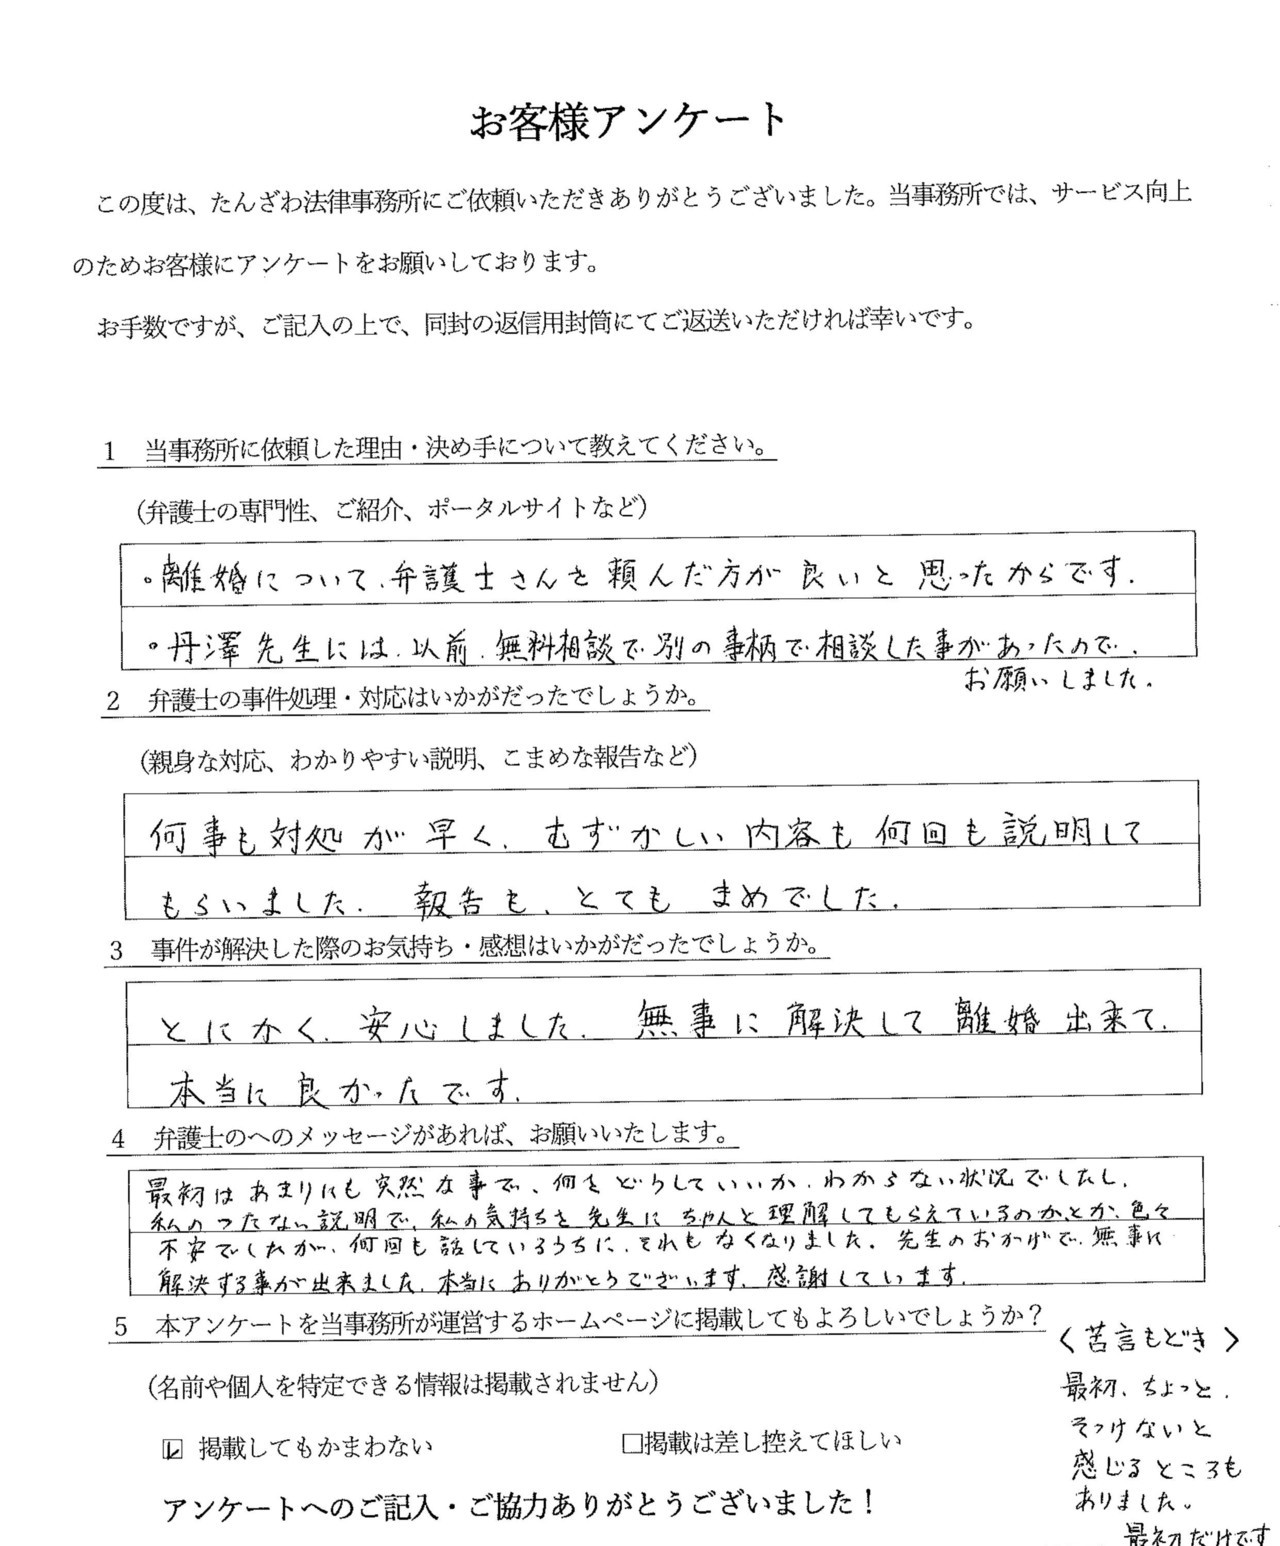 お客様アンケート
この度は、たんざわ法律事務所にご依頼いただきありがとうございました。当事務所では、サービス向上
のためお客様にアンケートをお願いしております。
お手数ですが、ご記入の上で、同封の返信用封筒にてご返送いただければ幸いです。
1 当事務所に依頼した理由・決め手について教えてください。
(弁護士の専門性、ご紹介、ポータルサイトなど)
・離婚について、弁護士さんを頼んだ方が良いと思ったからです.
・丹澤先生には、以前、無料相談で別の事柄で相談した事があったので、
お願いしました.
2 弁護士の事件処理・対応はいかがだったでしょうか。
(親身な対応、わかりやすい説明、こまめな報告など)
何事も対処が早く、むずかしい内容も何回も説明して
もらいました. 報告も、とてもまめでした.
3 事件が解決した際のお気持ち・感想はいかがだったでしょうか。
とにかく、安心しました. 無事に解決して離婚出来て、
本当に良かったです.
4 弁護士のへのメッセージがあれば、お願いいたします。
最初はあまりにも突然な事で、何をどうしていいか、わからない状況でしたし、
私のつたない説明で、私の気持ちを先生にちゃんと理解してもらえているのか、とか、色々
不安でしたが、何回も話しているうちに、それもなくなりました. 先生のおかげで、無事に
解決する事が出来ました. 本当にありがとうございます. 感謝しています.
5 本アンケートを当事務所が運営するホームページに掲載してもよろしいでしょうか?
(名前や個人を特定できる情報は掲載されません)
☑ 掲載してもかまわない □掲載は差し控えてほしい
アンケートへのご記入・ご協力ありがとうございました!
〈苦言もどき〉
最初、ちょっと、
そっけないと
感じるところも
ありました。
最初だけです